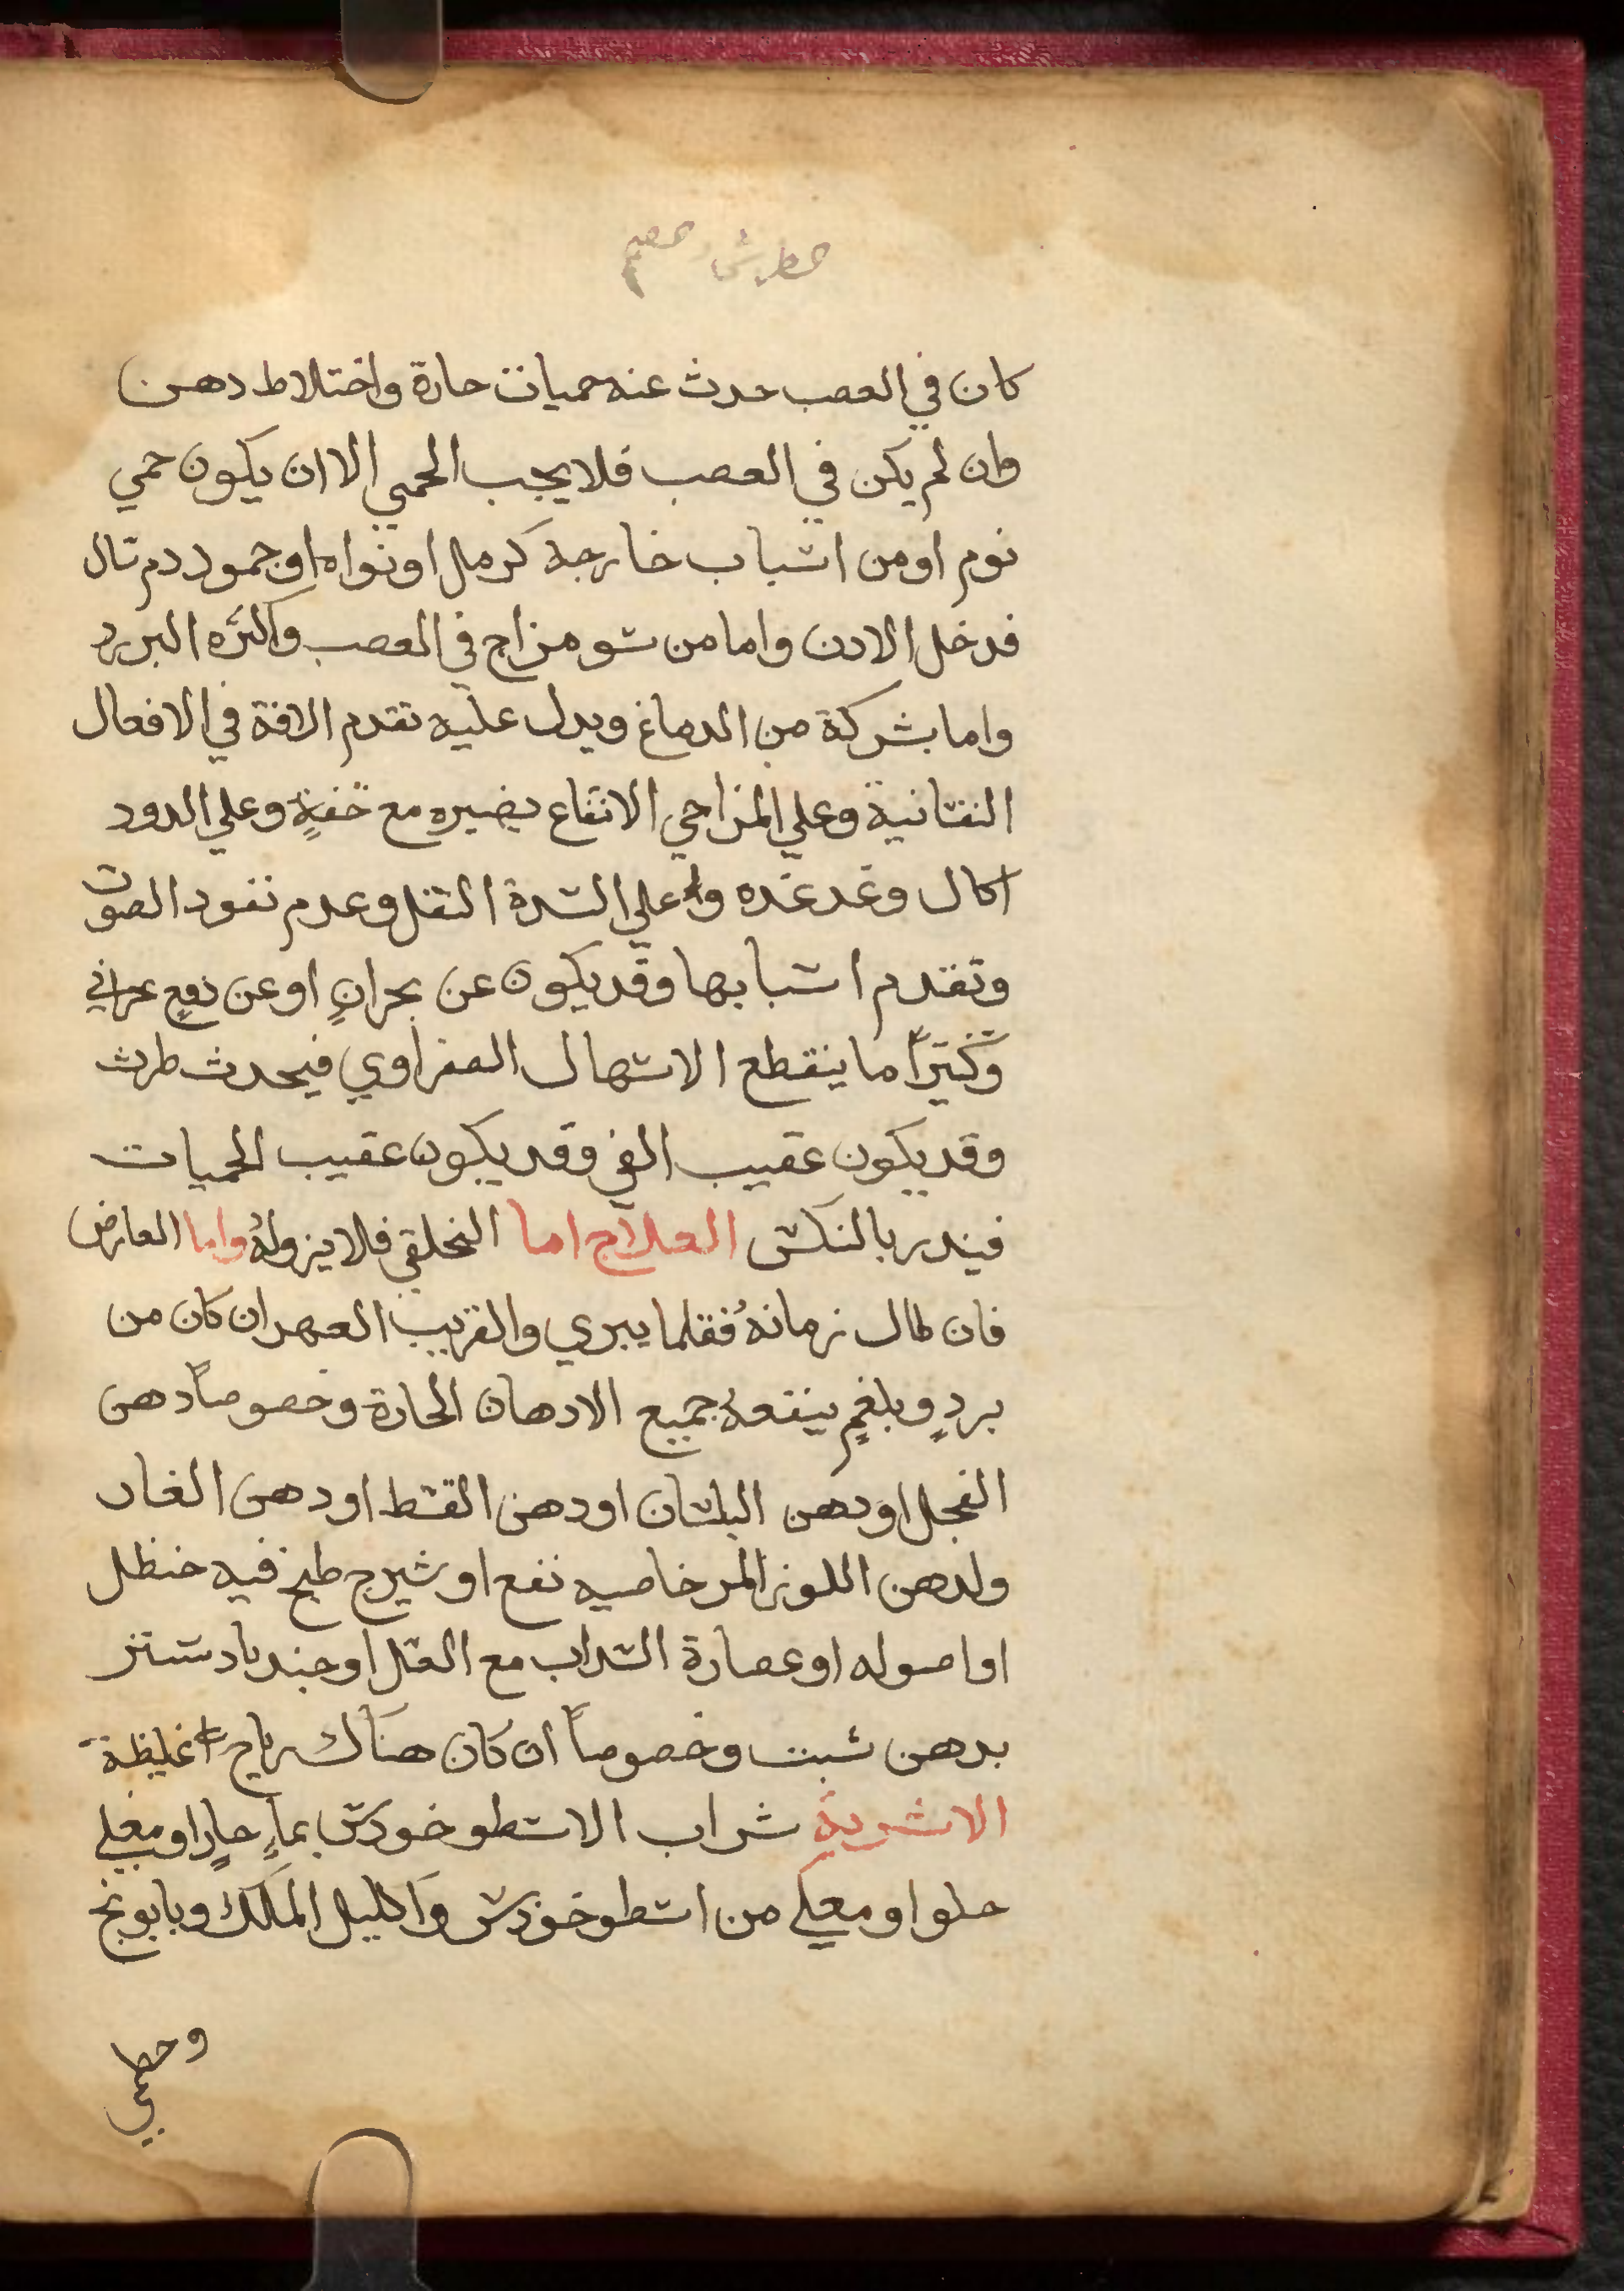 كان في العصب حدث عنه حميات حارة واختلاط دهن
وان لم يكن في العصب فلا يجب الحمي الا ان يكون حمي
نوم او من اسباب خارجة كرمل او نواه او جمود دم سال
فدخل الادن واما من سو مزاج في العصب واكثره البرد
واما بشركة من الدماغ ويدل عليه تقدم الافة في الافعال
النفسانية وعلي المزاجي الانتفاع بضيره مع خفةٍ وعلي الدود
اكال وغدغده وعلي السدة الثقل وعدم نفود الصوت
وتقدم اسبابها وقد يكون عن بحرانٍ او عن دفعٍ
وكثيراً ما ينقطع الاسهال الصفراوي فيحدث طرش
وقد يكون عقيب القي وقد يكون عقيب الحميات
فيندر بالنكس العلاج اما الخلقي فلا يزولهُ واما العارض
فان طال زمانهُ فقلما يبري والقريب العهد ان كان من
بردٍ وبلغمٍ ينفعهُ جميع الادهان الحارة وخصوصاً دهن
الفجل او دهن البلسان او دهن القسط او دهن الغار
ولدهن اللوز المر خاصيه نفع او شيرج طبخ فيه حنظل
او اصوله او عصارة السداب مع العسل او جندبادستر
بدهن شبت وخصوصاً ان كان هناك رياح غليظة
الاشربة شراب الاسطوخودس بماءٍ حارٍ او مغلي
حلو او مغلي من اسطوخودس واكليل الملك وبابونج
وخطمي